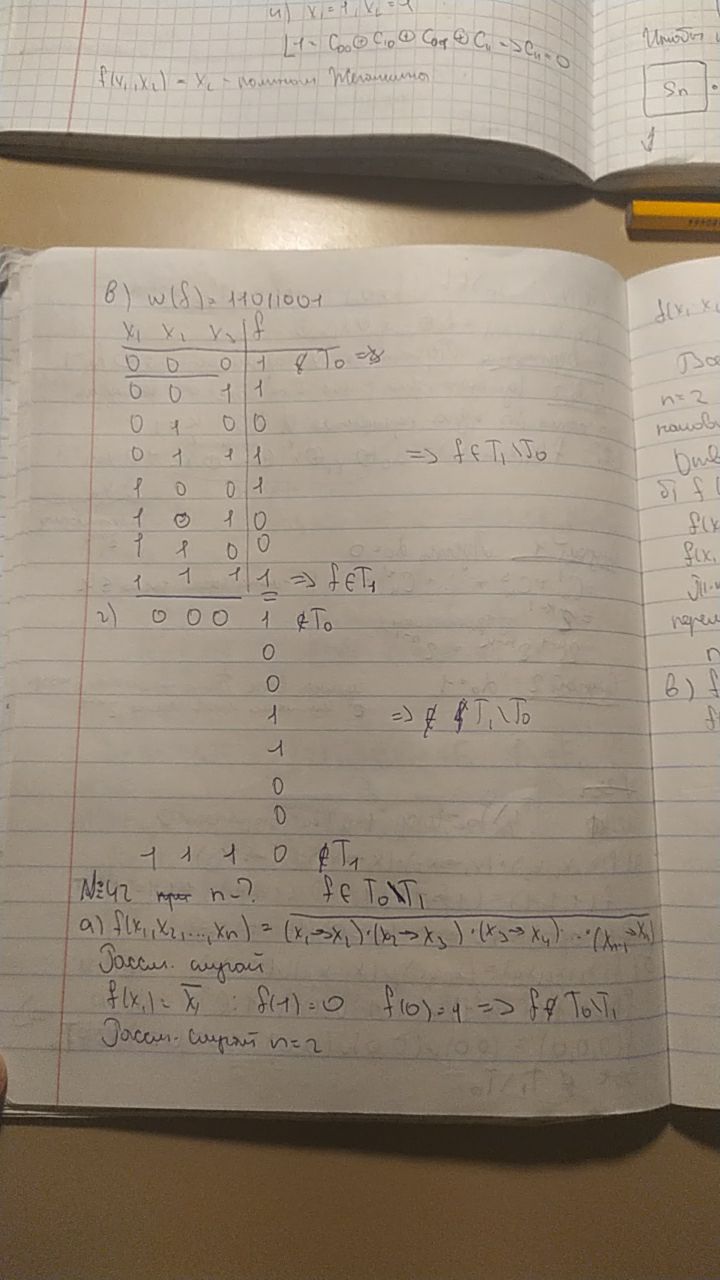 4) x₁=1, x₂=1
1 = C₀₀⊕C₁₀⊕C₀₁⊕C₁₁ => C₁₁=0
f(x₁,x₂) = x₂ - полином Жегалкина
Чтобы
Sn
в) w(f) = 11011001
x₁ x₂ x₃ f
0 0 0 1 ∉ T₀ =>
0 0 1 1
0 1 0 0
0 1 1 1 => f∈T₁\T₀
1 0 0 1
1 0 1 0
1 1 0 0
1 1 1 1 => f∈T₁
г) 0 0 0 1 ∉T₀
0
0
1 => ∉ T₁\T₀
1
0
0
1 1 1 0 ∉T₁
№42 n-? f∈ T₀\T₁
а) f(x₁,x₂,...,xn) = (x₁→x₂)·(x₂→x₃)·(x₃→x₄)·...·(xn-1→x₁)
Рассм. случай
f(x₁) = x̄₁ : f(1)=0 f(0)=1 => f∉ T₀\T₁
Рассм. случай n=2
f(x₁ x₂
n=2
б) f(
f(x
f(x₁
n
в) f